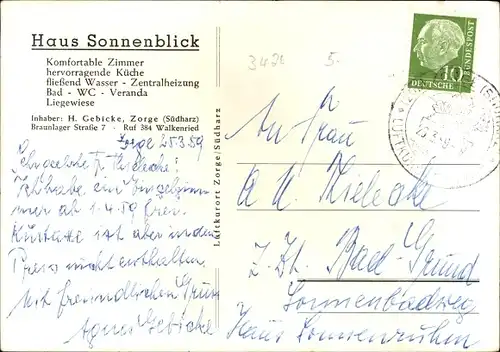 Haus Sonnenblick
Komfortable Zimmer
hervorragende Küche
fließend Wasser - Zentralheizung
Bad - WC - Veranda
Liegewiese
Inhaber: H. Gebicke, Zorge (Südharz)
Braunlager Straße 7 · Ruf 384 Walkenried
Zorge 25.3.59
Sehr geehrte Fr. Kielecke!
Ich habe ein Einzelzim
mer ab 1.4.59 frei.
Kurtaxe ist aber in dem
Preis nicht enthalten.
Mit freundlichen Gruss
Agnes Gebicke
Luftkurort Zorge/Südharz
5.
10
DEUTSCHE
BUNDESPOST
An Frau
A. K. Kielecke
z. Zt. Bad-Grund
Sonnenbadweg
Haus Sonnenruhm